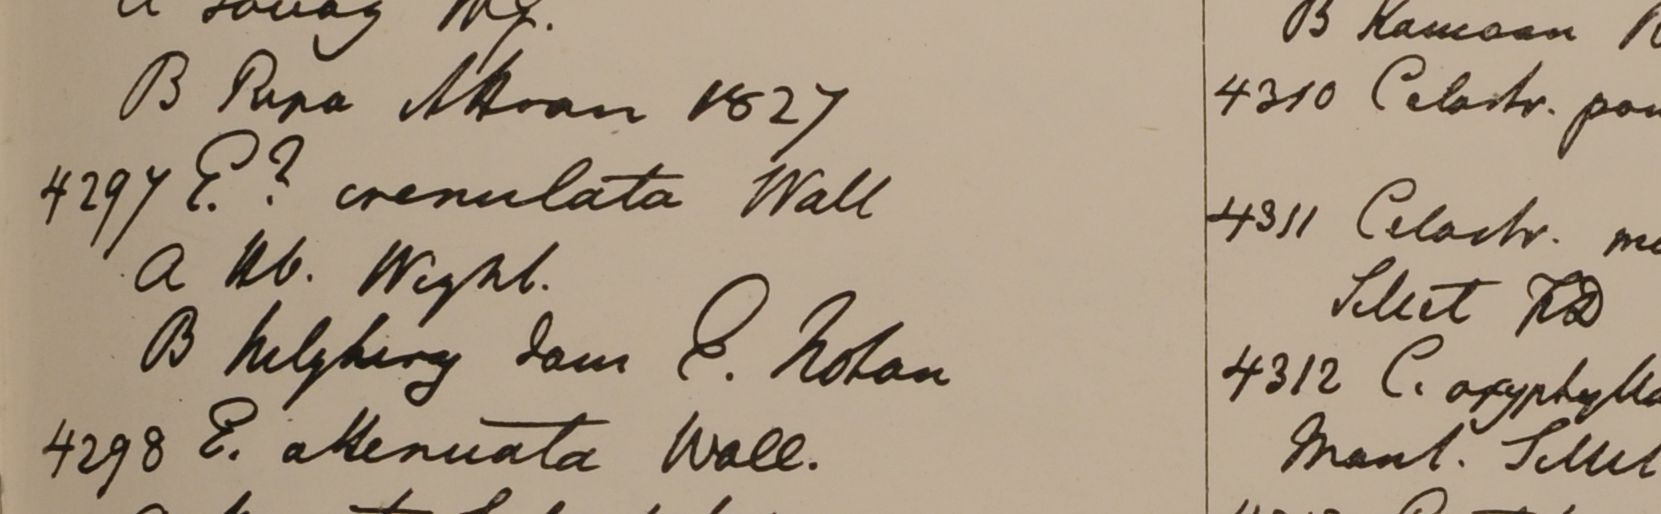 B Pupa Attran 1827
4297 E.? crenulata Wall
a Hb. Wight.
B Nelghery dam E. Notan
4298 E. attenuata Wall.
B Kamoan
4310 Celastr.
4311 Celastr.
Sillet FD
4312 C. oxyphylla
Mont. Sillet